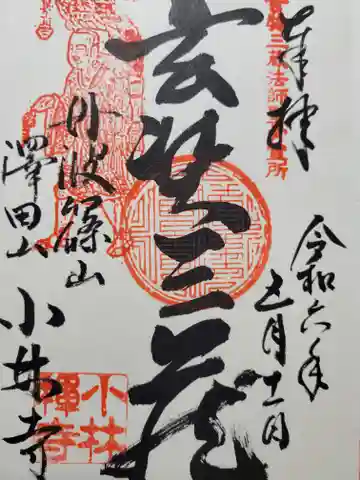 奉拝
令和六年
五月十一日
玄奘三蔵
丹波篠山
澤田山
小林寺
小林
禅寺